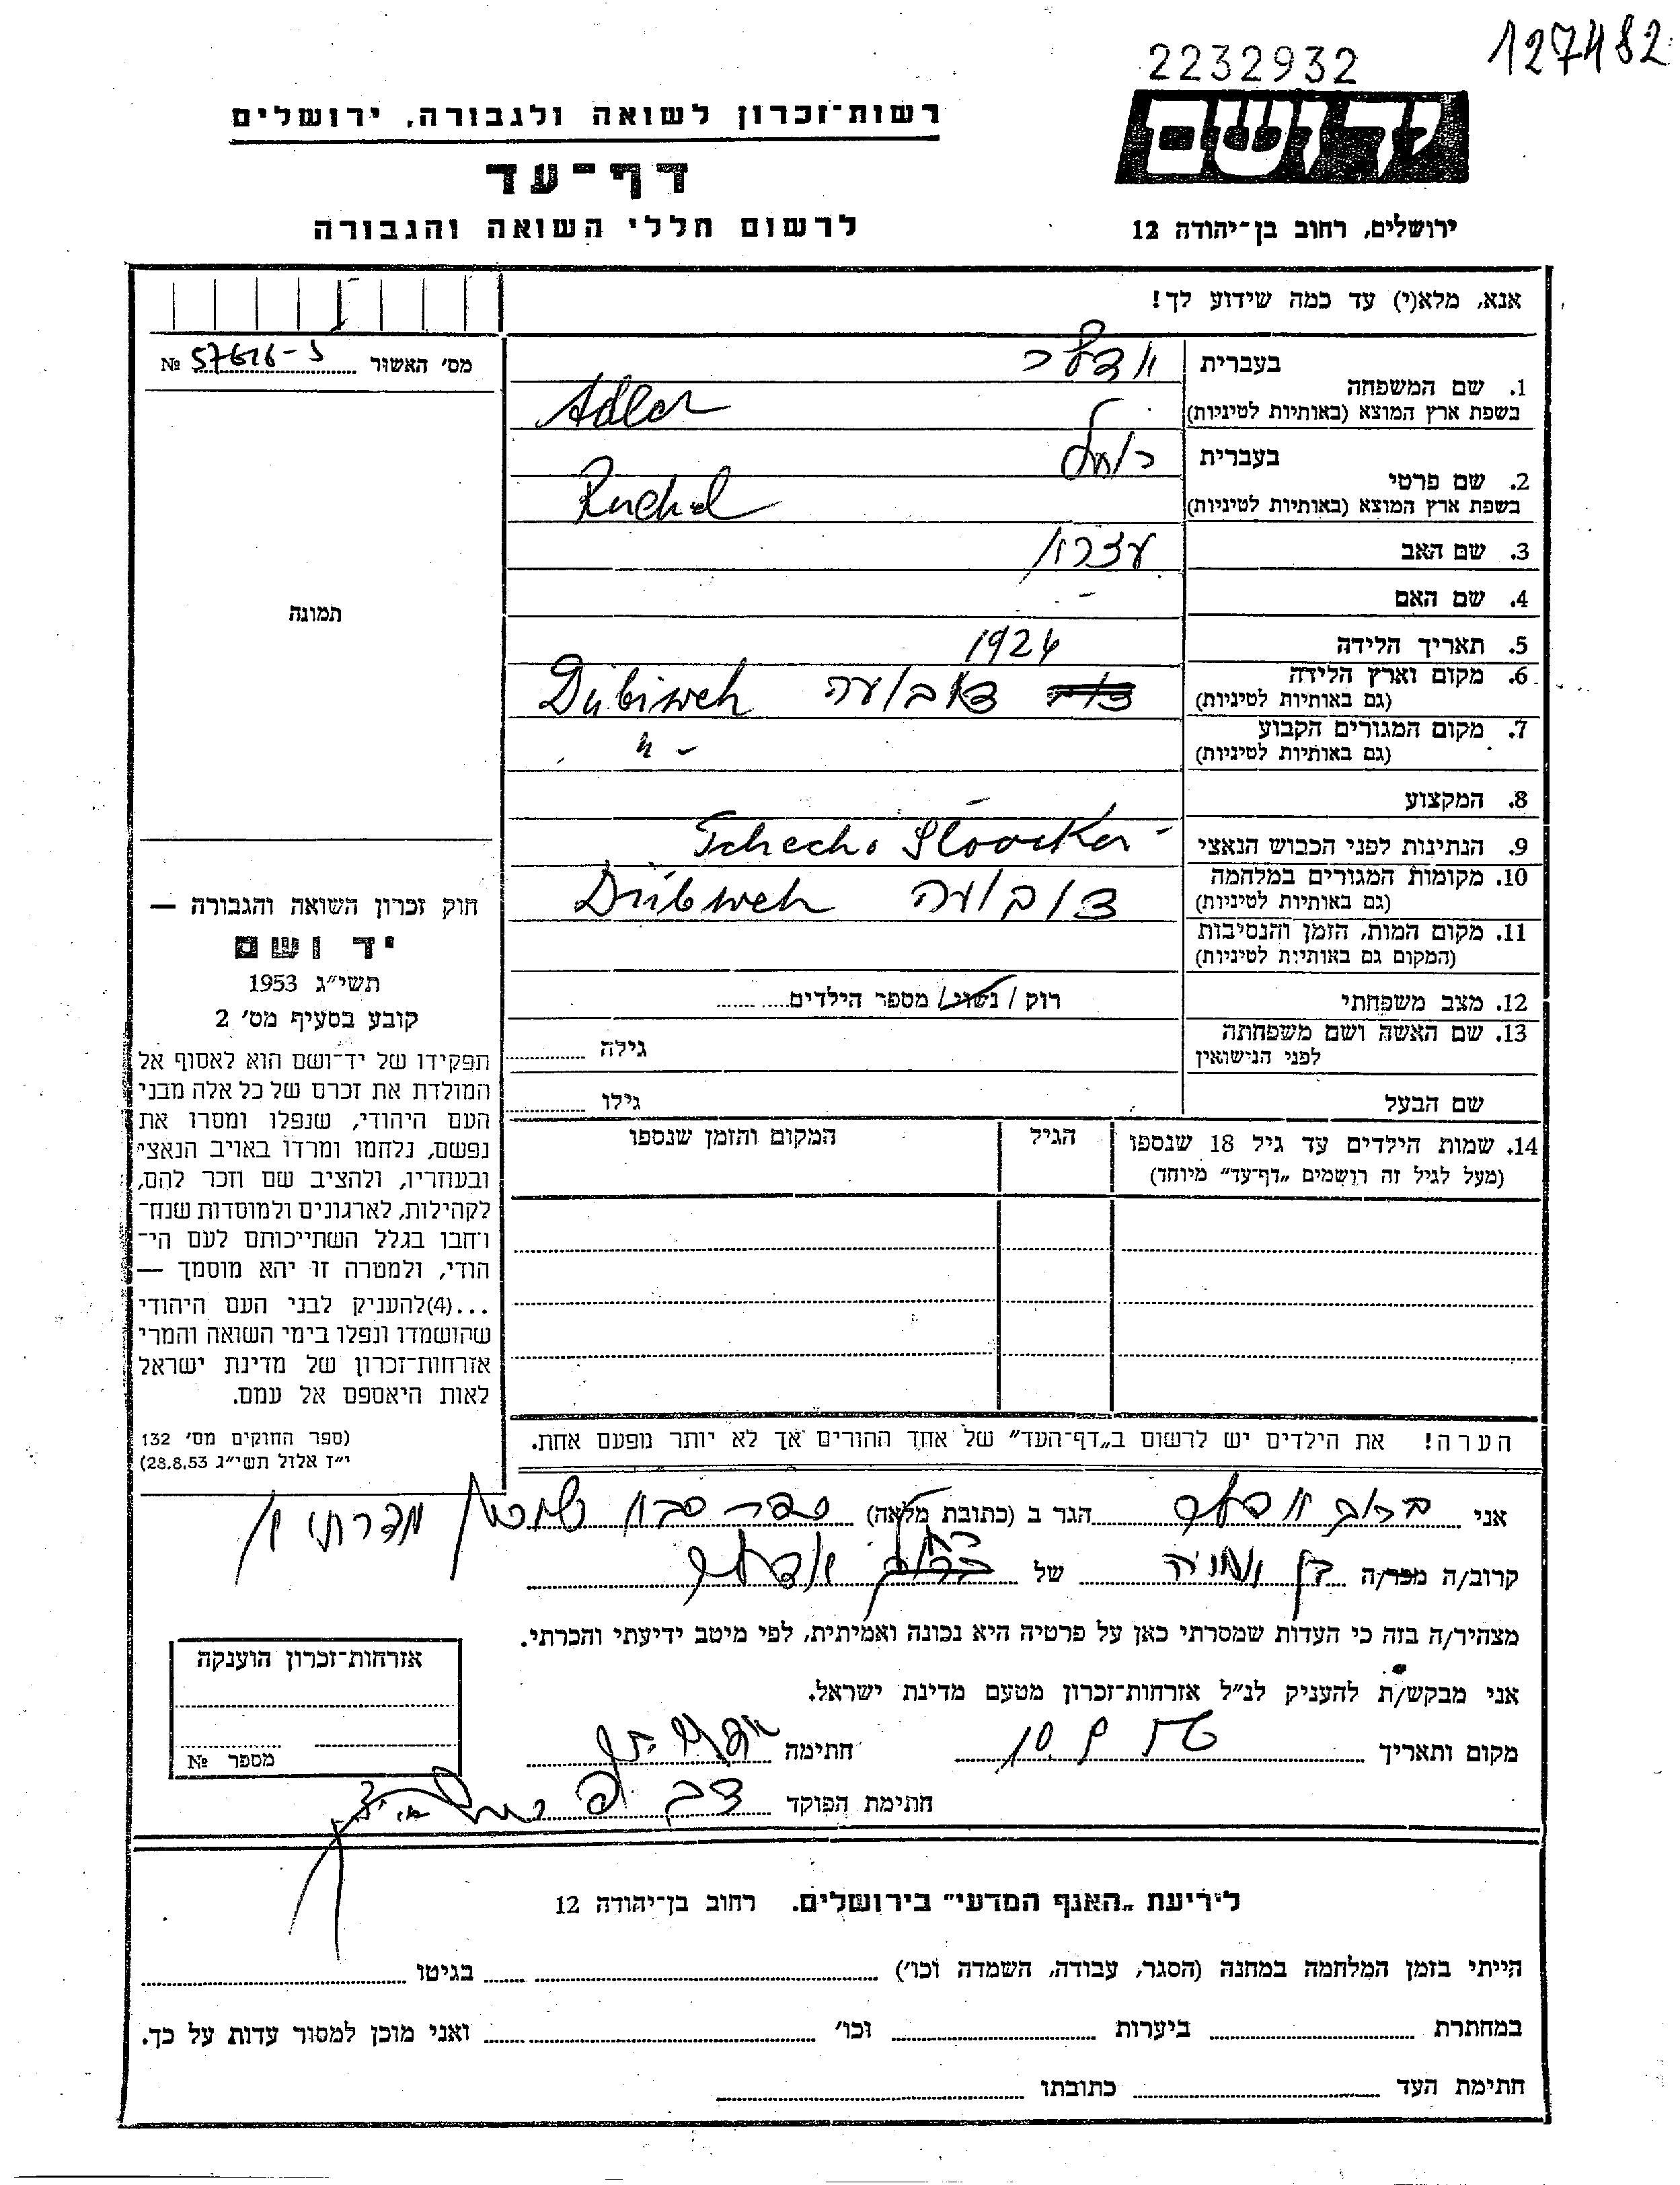 127482
2232932
יד ושם
ירושלים, רחוב בן־יהודה 12
רשות־זכרון לשואה ולגבורה, ירושלים
דף־עד
לרשום חללי השואה והגבורה
אנא, מלא(י) עד כמה שידוע לך!
מס׳ האשור № 57616-ג
1. שם המשפחה
בעברית אדלר
בשפת ארץ המוצא (באותיות לטיניות) Adler
2. שם פרטי
בעברית רוחל
בשפת ארץ המוצא (באותיות לטיניות) Ruchel
3. שם האב
4. שם האם -
5. תאריך הלידה 1924
6. מקום וארץ הלידה
(גם באותיות לטיניות)
7. מקום המגורים הקבוע - " -
(גם באותיות לטיניות)
8. המקצוע -
9. הנתינות לפני הכבוש הנאצי
10. מקומות המגורים במלחמה
(גם באותיות לטיניות)
11. מקום המות, הזמן והנסיבות
(המקום גם באותיות לטיניות)
12. מצב משפחתי רוק / נשוי / מספר הילדים
13. שם האשה ושם משפחתה
לפני הנישואין גילה
שם הבעל גילו
14. שמות הילדים עד גיל 18 שנספו
(מעל לגיל זה רושמים „דף־עד״ מיוחד)
הגיל
המקום והזמן שנספו
הערה! את הילדים יש לרשום ב„דף־העד״ של אחד ההורים אך לא יותר מפעם אחת.
תמונה
חוק זכרון השואה והגבורה —
יד ושם
תשי״ג 1953
קובע בסעיף מס׳ 2
תפקידו של יד־ושם הוא לאסוף אל
המולדת את זכרם של כל אלה מבני
העם היהודי, שנפלו ומסרו את
נפשם, נלחמו ומרדו באויב הנאצי
ובעוזריו, ולהציב שם וזכר להם,
לקהילות, לארגונים ולמוסדות שנח־
רבו בגלל השתייכותם לעם הי־
הודי, ולמטרה זו יהא מוסמך —
...(4)להעניק לבני העם היהודי
שהושמדו ונפלו בימי השואה והמרי
אזרחות־זכרון של מדינת ישראל
לאות היאספם אל עמם.
(ספר החוקים מס׳ 132
י״ז אלול תשי״ג 28.8.53)
אני ברוך אדלר הגר ב (כתובת מלאה)
קרוב/ה מכר/ה של אדלר
מצהיר/ה בזה כי העדות שמסרתי כאן על פרטיה היא נכונה ואמיתית, לפי מיטב ידיעתי והכרתי.
אני מבקש/ת להעניק לנ״ל אזרחות־זכרון מטעם מדינת ישראל.
מקום ותאריך חתימה
חתימת הפוקד
אזרחות־זכרון הוענקה
מספר №
לידיעת „האגף המדעי״ בירושלים. רחוב בן־יהודה 12
הייתי בזמן המלחמה במחנה (הסגר, עבודה, השמדה וכו׳) בגיטו
במחתרת ביערות וכו׳ ואני מוכן למסור עדות על כך.
חתימת העד כתובתו